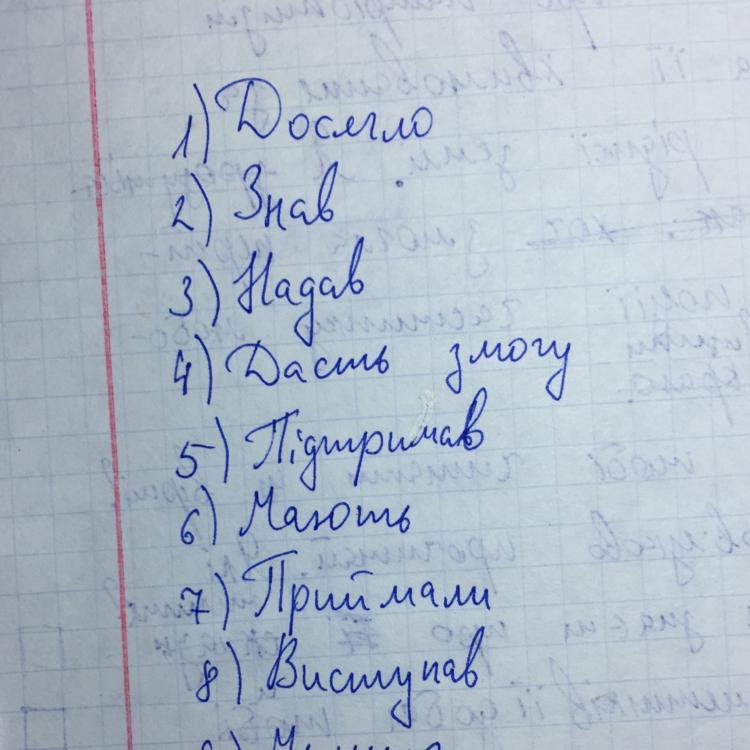 1) Досягло
2) Знав
3) Надав
4) Дасть змогу
5) Підтримав
6) Мають
7) Приймали
8) Виступав